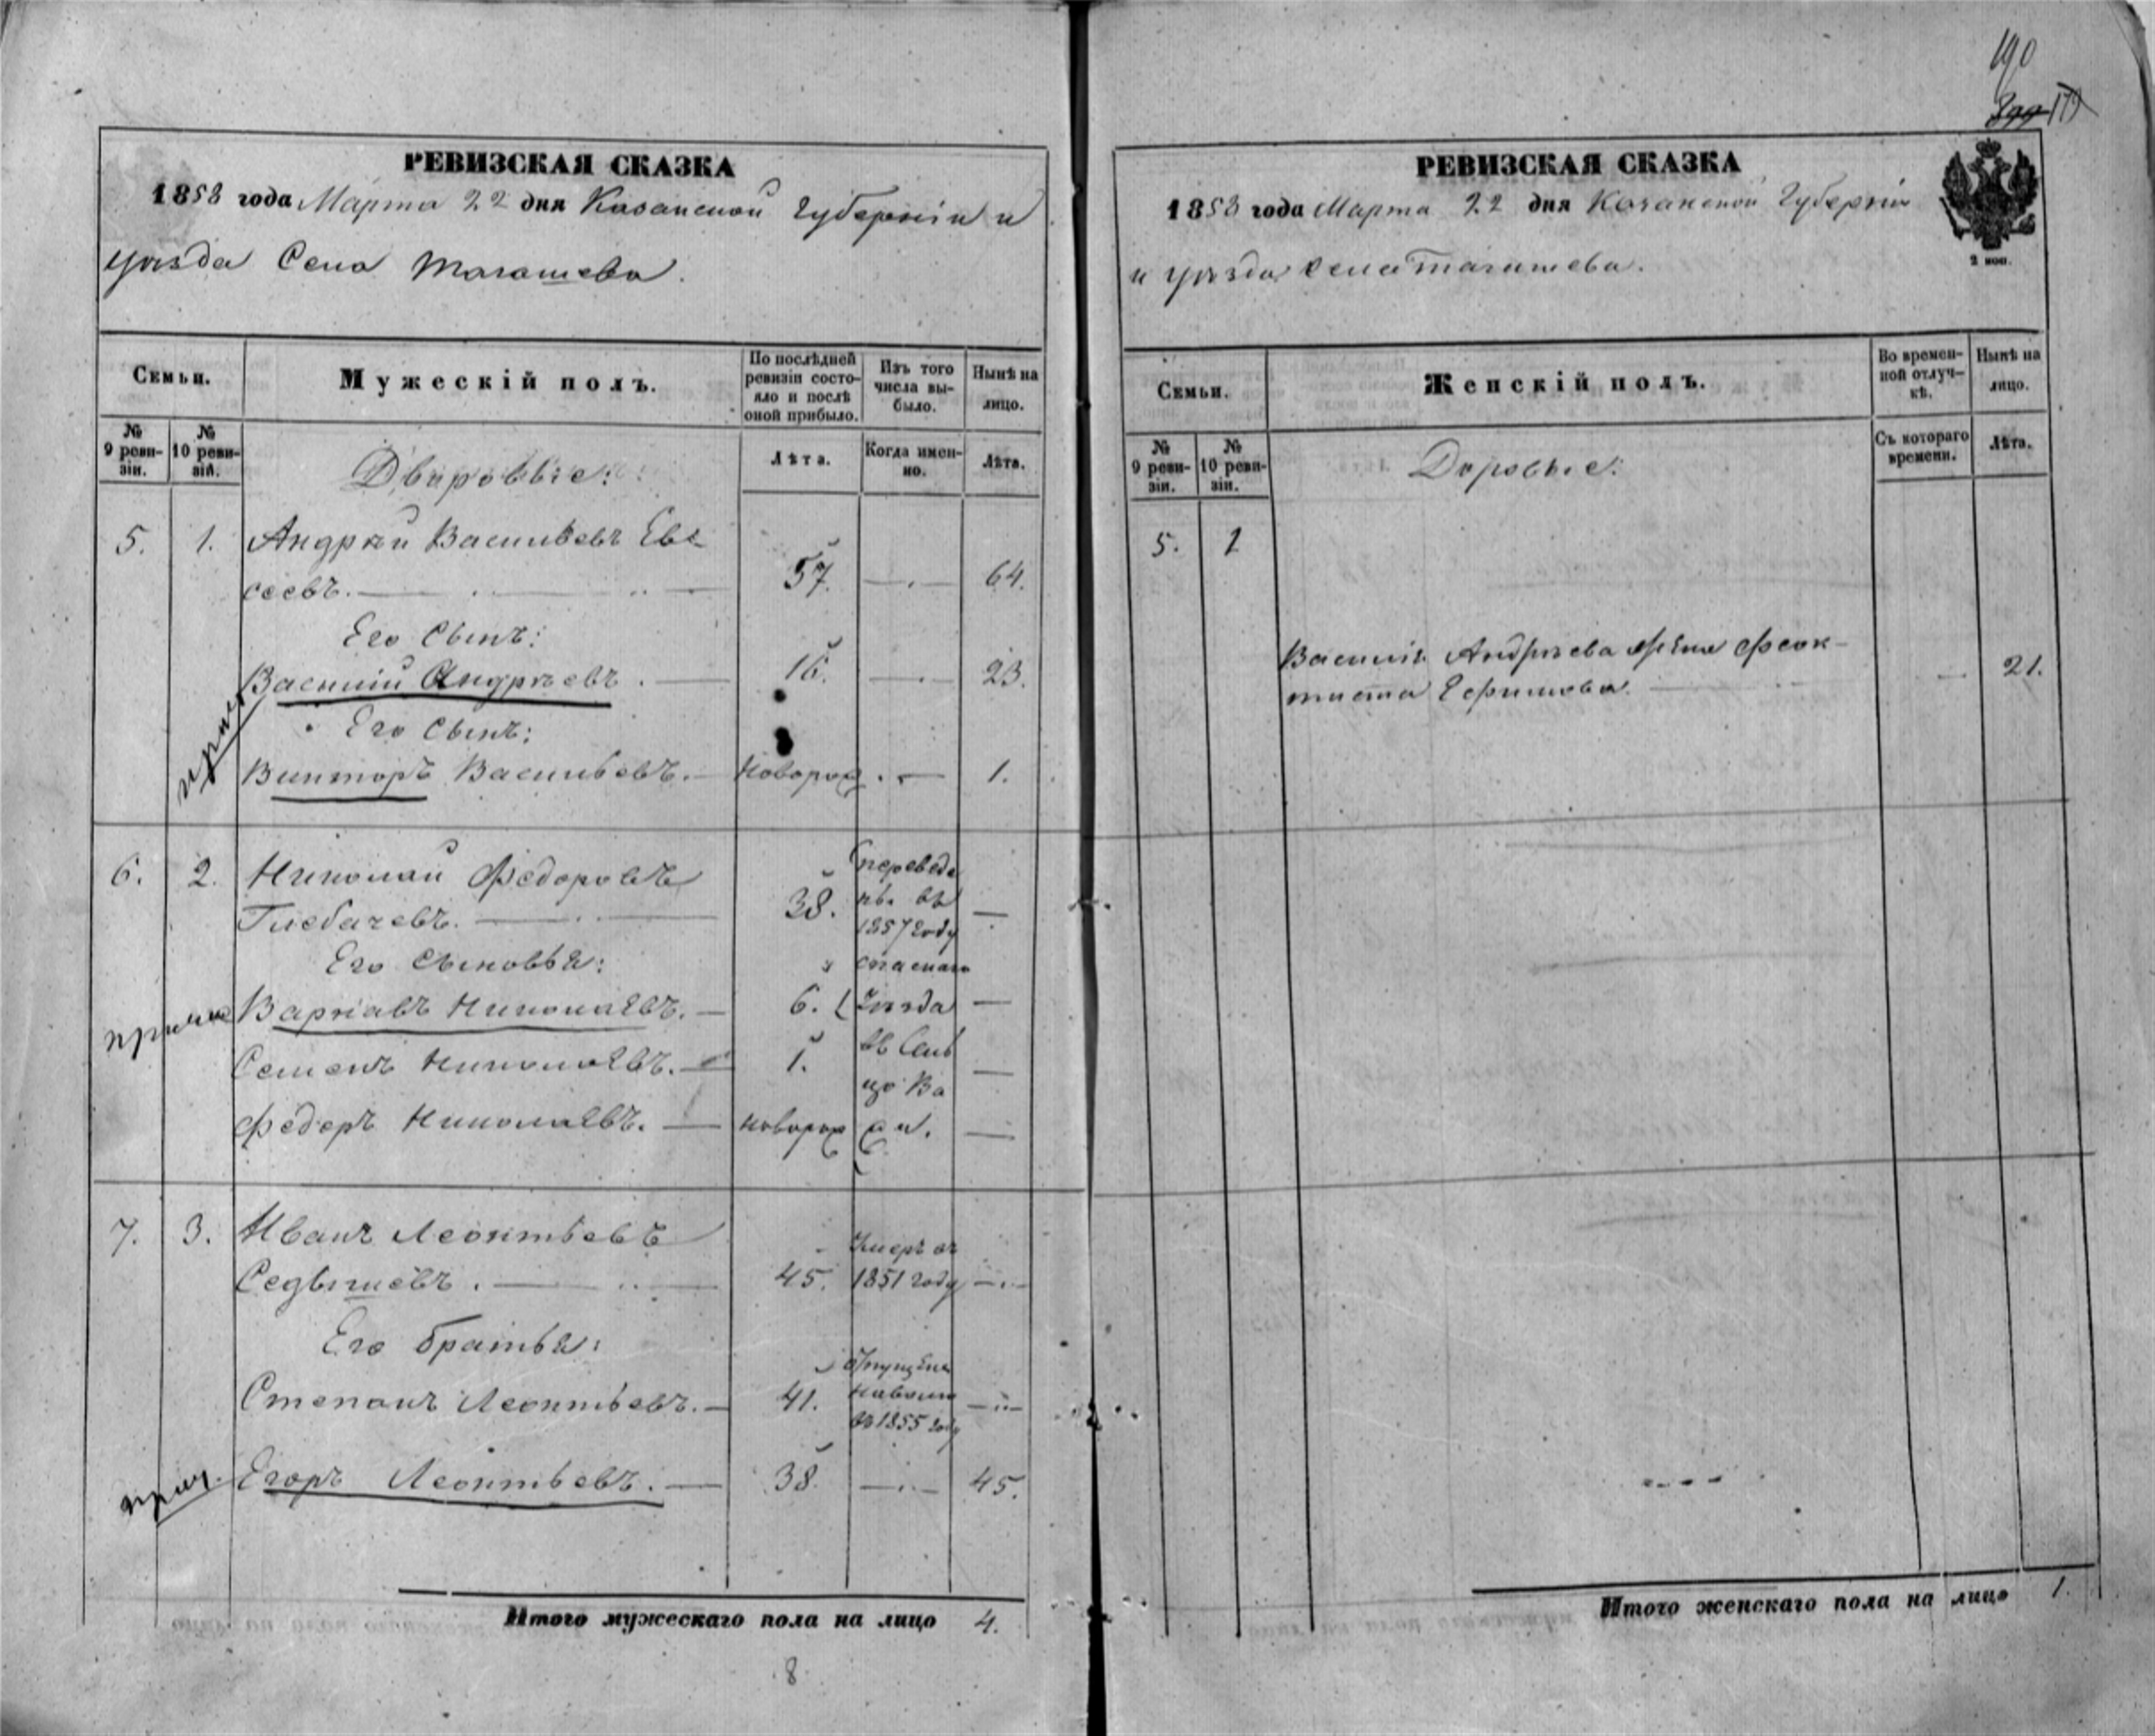 190
899
РЕВИЗСКАЯ СКАЗКА
1858 года Марта 22 дня Казанской Губерніи и
уѣзда Села Тагашева.
Семьи.
Мужескій полъ.
По послѣдней ревизіи состояло и послѣ оной прибыло.
Изъ того числа выбыло.
Нынѣ на лицо.
№ 9 ревизіи.
№ 10 ревизіи.
Лѣта.
Когда именно.
Лѣта.
Дворовые:
5. 1. Андрѣй Васильевъ Ев-
сеевъ. 57. 64.
Его Сынъ:
Василій Андрѣевъ. 16. 23.
Его Сынъ:
Викторъ Васильевъ. новорож. 1.
6. 2. Николай Федоровъ переведе
Глебачевъ. 38. нъ въ
1857 году
Его Сыновья: спаскаго
Варлавъ Николаевъ. 6. Уѣзда
Семенъ Николаевъ. 1. въ Сель
цо Ва
Федеръ Николаевъ. новорож
7. 3. Иванъ Леонтьевъ Умеръ въ
Седышевъ. 45. 1851 году
Его братья:
Степанъ Леонтьевъ. 41. отпущенъ
наволю
въ 1855 году
Егоръ Леонтьевъ. 38. 45.
Итого мужескаго пола на лицо 4.
8
РЕВИЗСКАЯ СКАЗКА
1858 года Марта 22 дня Казанской Губерніи
и уѣзда села Тагашева.
2 коп.
Семьи.
Женскій полъ.
Во временной отлучкѣ.
Нынѣ на лицо.
№ 9 ревизіи.
№ 10 ревизіи.
Съ котораго времени.
Лѣта.
Доровые:
5. 1
Василія Андрѣева жена Феок-
тиста Ефимова. 21.
Итого женскаго пола на лицо 1.